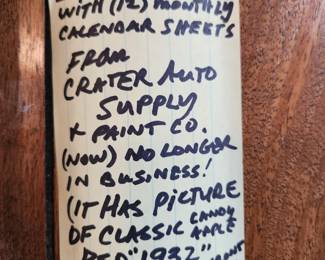 WITH (12) MONTHLY
CALENDAR SHEETS
FROM
CRATER AUTO
SUPPLY
& PAINT CO.
(NOW) NO LONGER
IN BUSINESS!
(IT HAS PICTURE
OF CLASSIC CANDY APPLE
RED "1932"